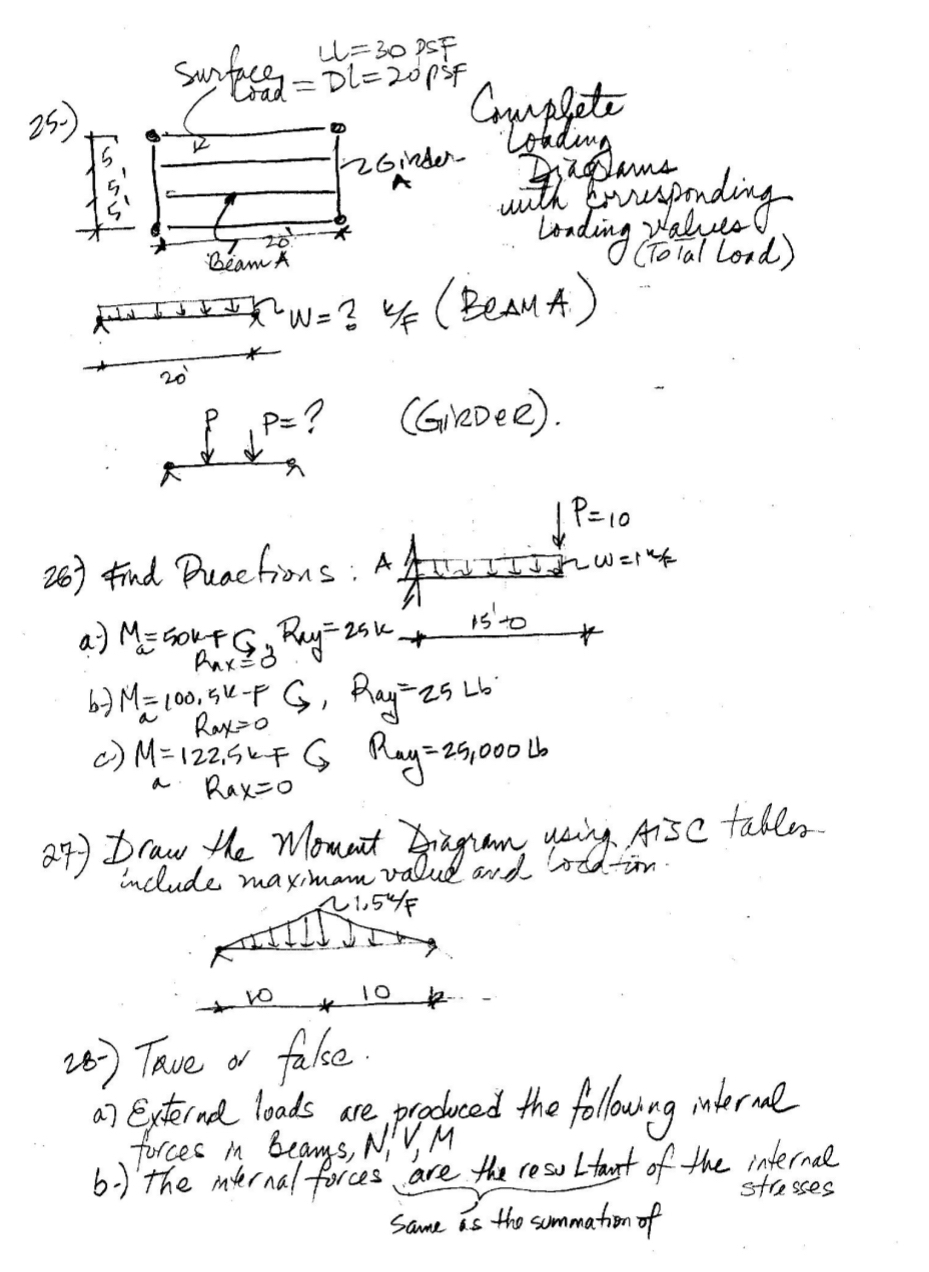 LL=30 PSF
Surface Load = DL=20PSF
25-)
5'
5'
5'
Girder A
Complete
Loading
Diagrams
with Corresponding
Loading values
(Total Load)
20'
Beam A
W=? K/F (BEAM A)
20'
P P=? (GIRDER).
P=10
26-) Find Reactions: A W=1 K/F
15'-0
a-) Ma=50K-F, Ray=25K
Rax=0
b-) Ma=100.5K-F, Ray=25 Lb
Rax=0
c-) Ma=122.5K-F Ray=25,000 Lb
Rax=0
27-) Draw the Moment Diagram using AISC tables
include maximam value and location.
1.5K/F
10 10
28-) True or false.
a) External loads are produced the following internal
forces in Beams, N, V, M
b-) The internal forces are the resultant of the internal
stresses
same as the summation of